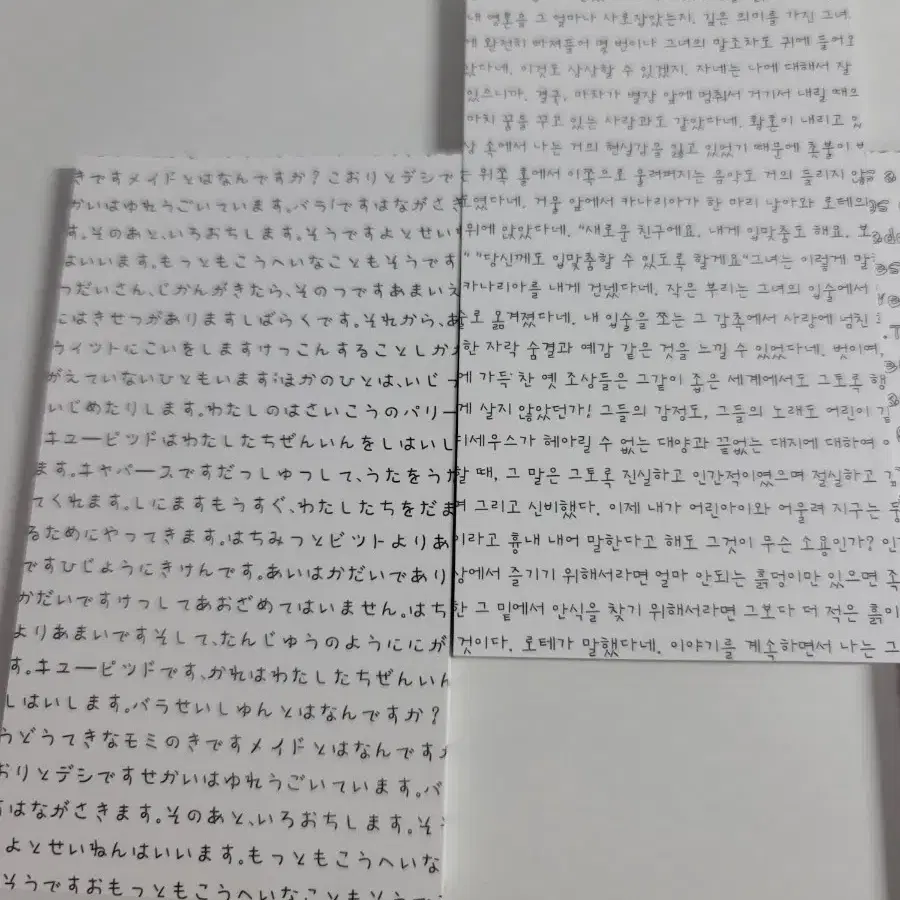 きですメイドとはなんですか？こおりとデシで
かいはゆれうごいています。バラ/ですはながさき
す。そのあと、いろおちします。そうですよとせい
はいいます。もっともこうへいなこともそうです
っだいさん、じかんがきたら、そのつですあまいえ
にはきせつがありますしばらくです。それから、あ
ウィットにこいをしますけっこんすることしか
がえていないひともいますほかのひとは、いじ
いじめたりします。わたしのはさいこうのパリー
キューピッドはわたしたちぜんいんをしはいし
ます。キャバースですだっしゅつして、うたをうた
てくれます。しにますもうすぐ、わたしたちをだま
るためにやってきます。はちみつとビットよりあ
ですひじようにきけんです。あいはかだいであり
かだいですけっしてあおざめてはいません。はち
よりあまいですそして、たんじゅうのようににが
す。キューピッドです、かれはわたしたちぜんいん
しはいします。バラせいしゅんとはなんですか？
うどうてきなモミのきですメイドとはなんですか
おりとデシですせかいはゆれうごいています。バ
すはながさきます。そのあと、いろおちします。そう
よとせいねんはいいます。もっともこうへいな
そうですおもっともこうへいなこともそうで
내 영혼을 그 얼마나 사로잡았는지. 깊은 의미를 가진 그녀.
에 완전히 빠져들어 몇 번이나 그녀의 말조차도 귀에 들어오
았다네. 이것도 상상할 수 있겠지. 자네는 나에 대해서 잘
있으니까. 결국, 마차가 별장 앞에 멈춰서 거기서 내릴 때으
마치 꿈을 꾸고 있는 사람과도 같았다네. 황혼이 내리고 있
상 속에서 나는 거의 현실감을 잃고 있었기 때문에 촛불이
위쪽 홀에서 이쪽으로 울려퍼지는 음악도 거의 들리지 않
였다네. 거울 앞에서 카나리아가 한 마리 날아와 로테의
위에 앉았다네. "새로운 친구에요. 내게 입맞춤도 해요. 보
" "당신께도 입맞춤할 수 있도록 할게요"그녀는 이렇게 말
카나리아를 내게 건넸다네. 작은 부리는 그녀의 입술에서
술로 옮겨졌다네. 내 입술을 쪼는 그 감촉에서 사랑에 넘친
한 자락 숨결과 예감 같은 것을 느낄 수 있었다네. 벗이여,
에 가득 찬 옛 조상들은 그같이 좁은 세계에서도 그토록 행
게 살지 않았던가! 그들의 감정도, 그들의 노래도 어린이 같
디세우스가 헤아릴 수 없는 대양과 끝없는 대지에 대하여 이
할 때, 그 말은 그토록 진실하고 인간적이였으며 절실하고
며 그리고 신비했다. 이제 내가 어린아이와 어울려 지구는 둥
이라고 흉내 내어 말한다고 해도 그것이 무슨 소용인가? 인
상에서 즐기기 위해서라면 얼마 안되는 흙덩이만 있으면 족
한 그 밑에서 안식을 찾기 위해서라면 그보다 더 적은 흙이
것이다. 로테가 말했다네. 이야기를 계속하면서 나는 그